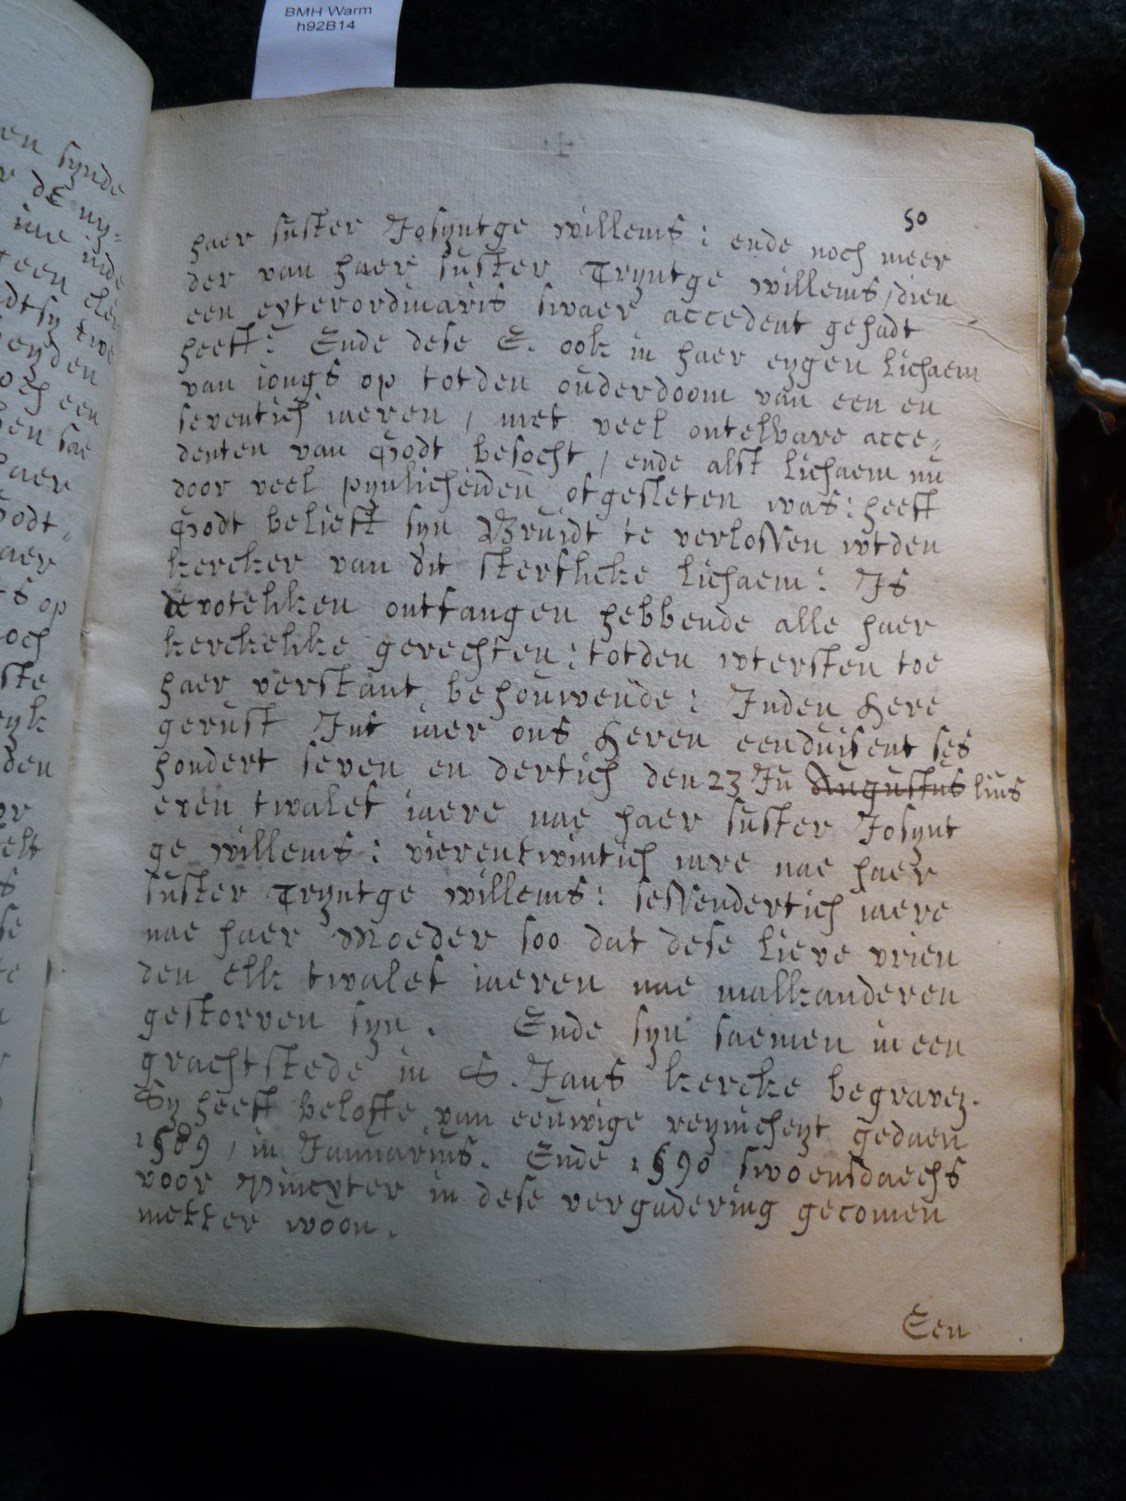 BMH Warm
h92B14
50
haer suster Josyntge willems : ende noch meer
der van haer suster Tryntge willems / dien
een exterordinaris swaer accedent gehadt
heeft : Ende dese E. ook in haer eygen lichaem
van iongs op totden ouderdoom van een en
seventich iaeren / met veel ontelbare acce=
denten van Godt besocht / ende alst lichaem nu
door veel pynlicheiden ofgesleten was : heeft
Godt belieft syn Bruidt te verlossen wtden
kercker van dit sterflicke lichaem : Is
devotelikken ontfangen hebbende alle haer
kerckelikke gerechten : totden wtersten toe
haer verstant behouwende : Inden Here
gerust Int iaer ons Heren eenduisent ses
hondert seven en dertich den 23 Ju Augustus lius
even twalef iaere nae haer suster Josynt
ge willems : vierentwintich iare nae haer
suster Tryntge willems : sessendertich iaere
nae haer Moeder soo dat dese lieve vrien
den elk twalef iaeren nae malkanderen
gestorven syn . Ende syn saemen in een
grachtstede in S. Jans kercke begraven.
Sy heeft belofte van eeuwige reynicheyt gedaen
1589 / in Januarius. Ende 1590 swoensdaechs
voor Pincxter in dese vergadering gecomen
metter woon .
Een
en synde
geen
heyden
och een
haer
Godt
haer
s op
och
ste
den